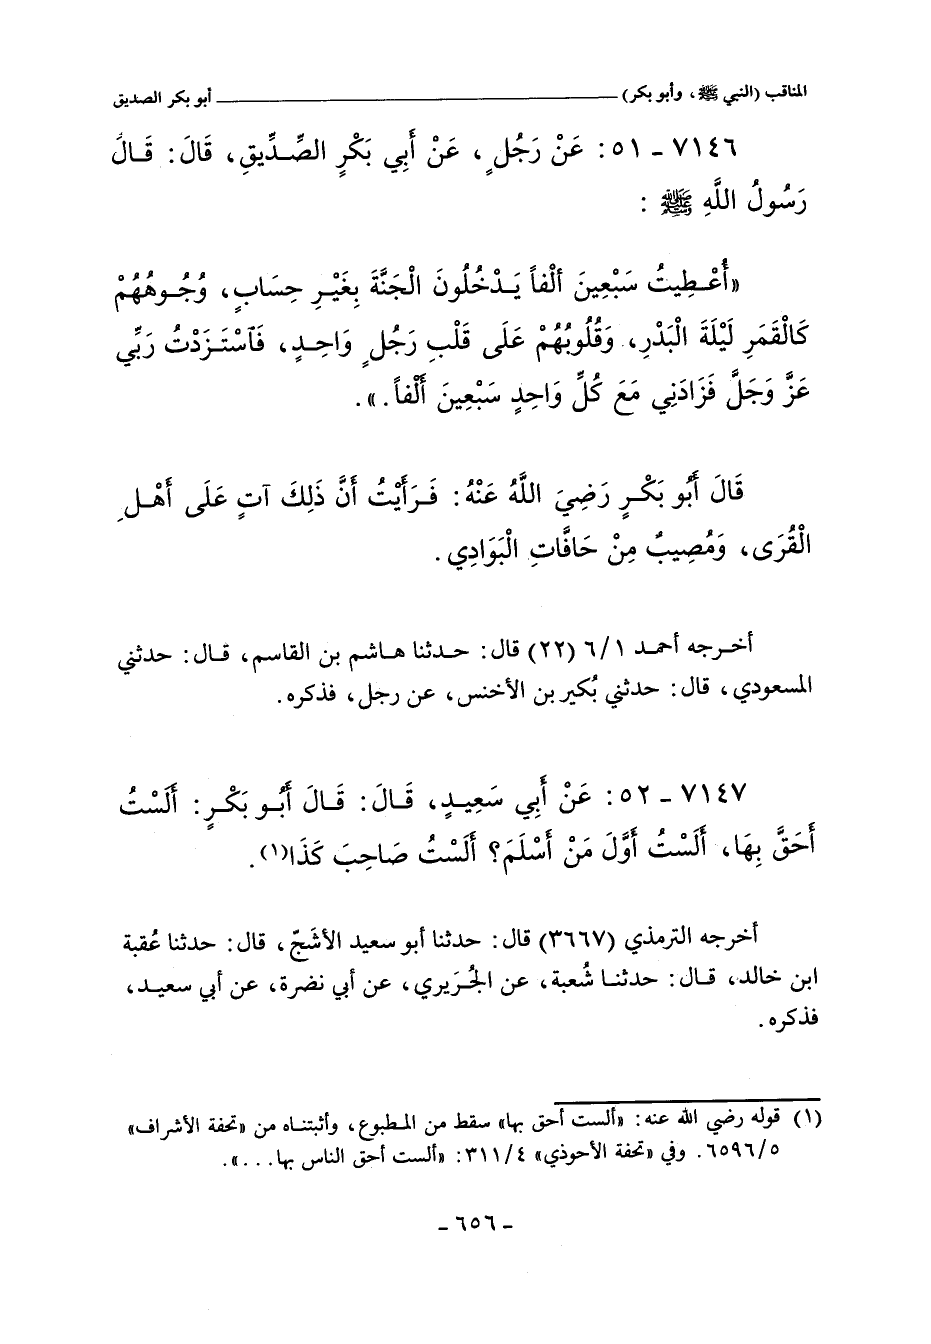 المناقب (النبي ﷺ، وأبو بكر) ــــــــــــــــ أبو بكر الصديق
٧١٤٦ ـ ٥١: عَنْ رَجُلٍ، عَنْ أَبِي بَكْرٍ الصِّدِّيقِ، قَالَ: قَالَ
رَسُولُ اللَّهِ ﷺ :
«أُعْطِيتُ سَبْعِينَ أَلْفاً يَدْخُلُونَ الْجَنَّةَ بِغَيْرِ حِسَابٍ، وُجُوهُهُمْ
كَالْقَمَرِ لَيْلَةَ الْبَدْرِ، وَقُلُوبُهُمْ عَلَى قَلْبِ رَجُلٍ وَاحِدٍ، فَآسْتَزَدْتُ رَبِّي
عَزَّ وَجَلَّ فَزَادَنِي مَعَ كُلِّ وَاحِدٍ سَبْعِينَ أَلْفاً.».
قَالَ أَبُو بَكْرٍ رَضِيَ اللَّهُ عَنْهُ: فَرَأَيْتُ أَنَّ ذَلِكَ آتٍ عَلَى أَهْلِ
الْقُرَى، وَمُصِيبٌ مِنْ حَافَّاتِ الْبَوَادِي.
أخرجه أحمد ٦/١ (٢٢) قال: حدثنا هاشم بن القاسم، قال: حدثني
المسعودي، قال: حدثني بُكير بن الأخنس، عن رجل، فذكره.
٧١٤٧ ـ ٥٢: عَنْ أَبِي سَعِيدٍ، قَالَ: قَالَ أَبُو بَكْرٍ: أَلَسْتُ
أَحَقَّ بِهَا، أَلَسْتُ أَوَّلَ مَنْ أَسْلَمَ؟ أَلَسْتُ صَاحِبَ كَذَا(١).
أخرجه الترمذي (٣٦٦٧) قال: حدثنا أبو سعيد الأشجّ، قال: حدثنا عُقبة
ابن خالد، قال: حدثنا شُعبة، عن الجُرَيري، عن أبي نضرة، عن أبي سعيد،
فذكره.
(١) قوله رضي الله عنه: «ألست أحق بها» سقط من المطبوع، وأثبتناه من «تحفة الأشراف»
٦٥٩٦/٥. وفي «تحفة الأحوذي» ٣١١/٤: «ألست أحق الناس بها...».
ـ ٦٥٦ ـ